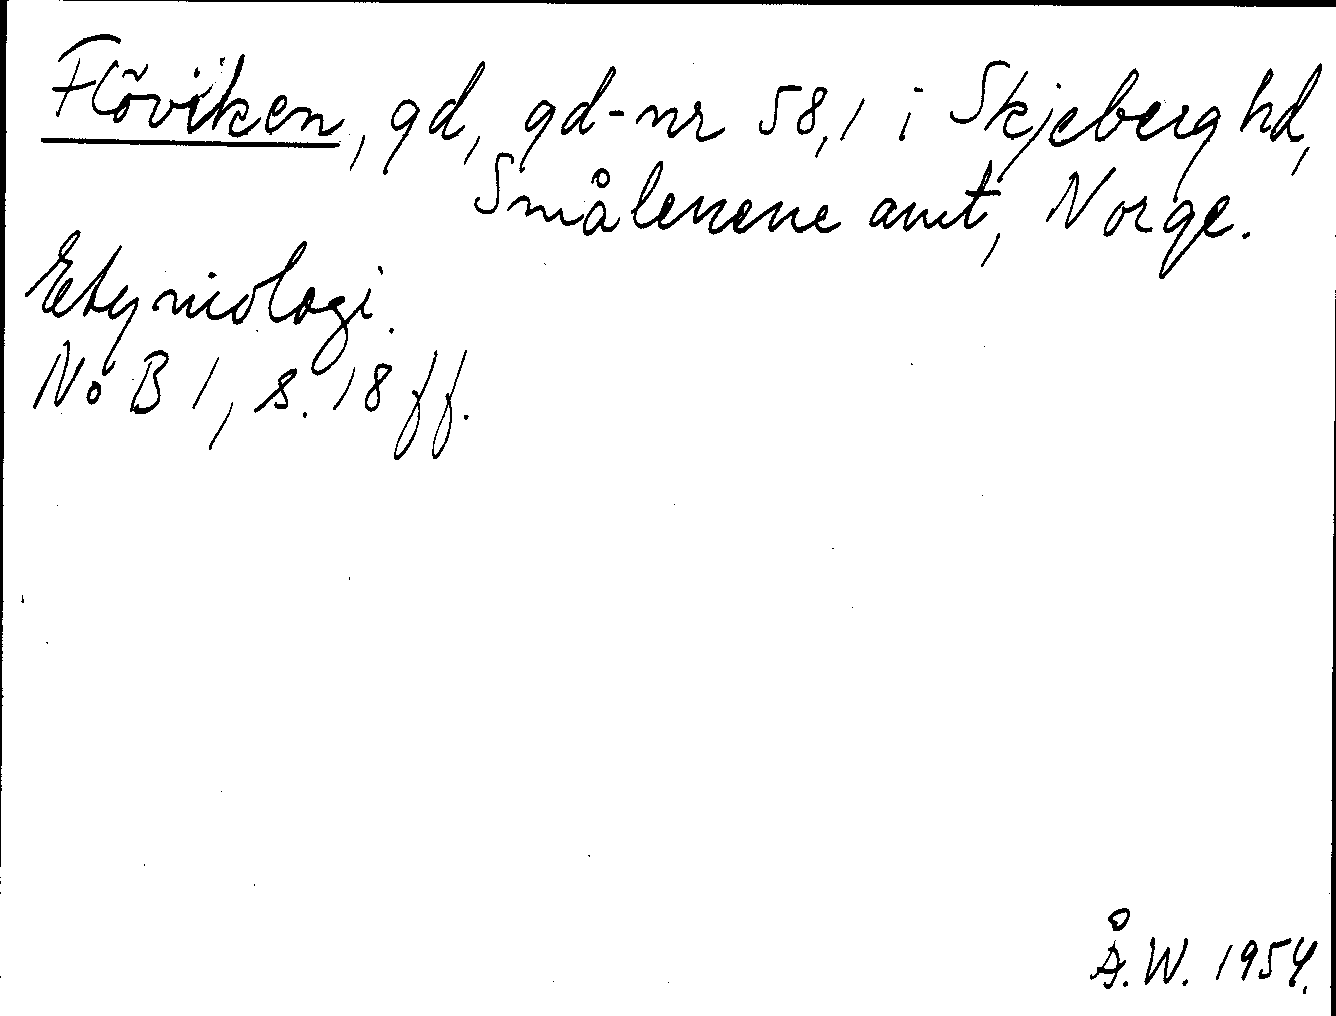 Flöviken, gd, gd-nr 58,1 i Skjeberg hd,
Smålenene amt, Norge.
Etymologi.
NoB 1, s. 18 ff.
Å.W. 1954.